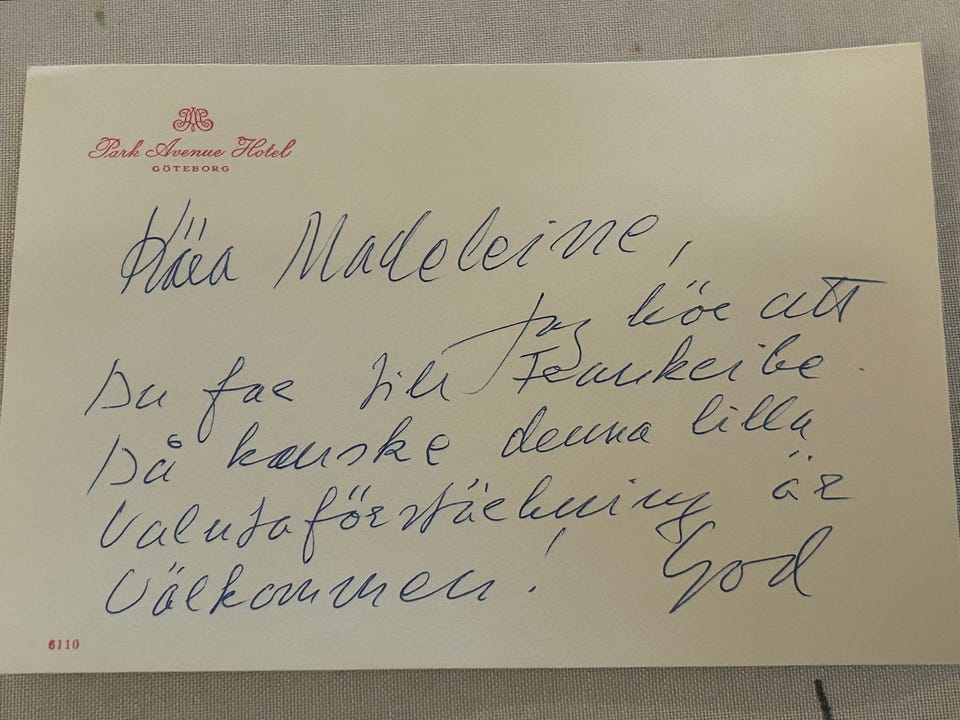 Park Avenue Hotel
GÖTEBORG
Kära Madeleine,
Jag hör att
Du far till Frankrike.
Då kanske denna lilla
Valutaförstärkning är
Välkommen! God
6110